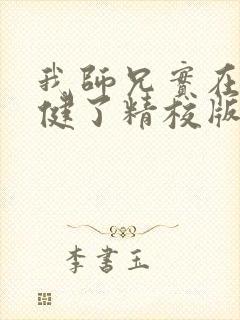 我師兄實在
健了精校版
李書玉